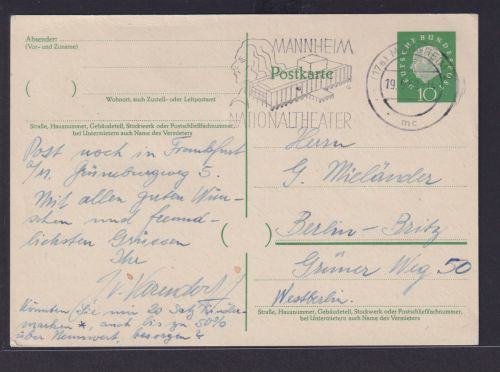 Absender:
(Vor- und Zuname)
MANNHEIM
NATIONALTHEATER
Postkarte
DEUTSCHE BUNDESPOST
10
(17a)
19.
mc
( )
Wohnort, auch Zustell- oder Leitpostamt
Straße, Hausnummer, Gebäudeteil, Stockwerk oder Postschließfachnummer,
bei Untermietern auch Name des Vermieters
Post noch in Frankfurt
a/M. Grüneburgweg 5.
Mit allen guten Wün-
schen und freund-
lichsten Grüssen
Ihr
V. Varendorf!
Könnten Sie mir 20 Satz Kinder-
marken *, auch bis zu 50%
über Nennwert, besorgen?
Herrn
G. Mieländer
( )
Berlin-Britz
Grüner Weg 50
Westberlin.
Straße, Hausnummer, Gebäudeteil, Stockwerk oder Postschließfachnummer,
bei Untermietern auch Name des Vermieters